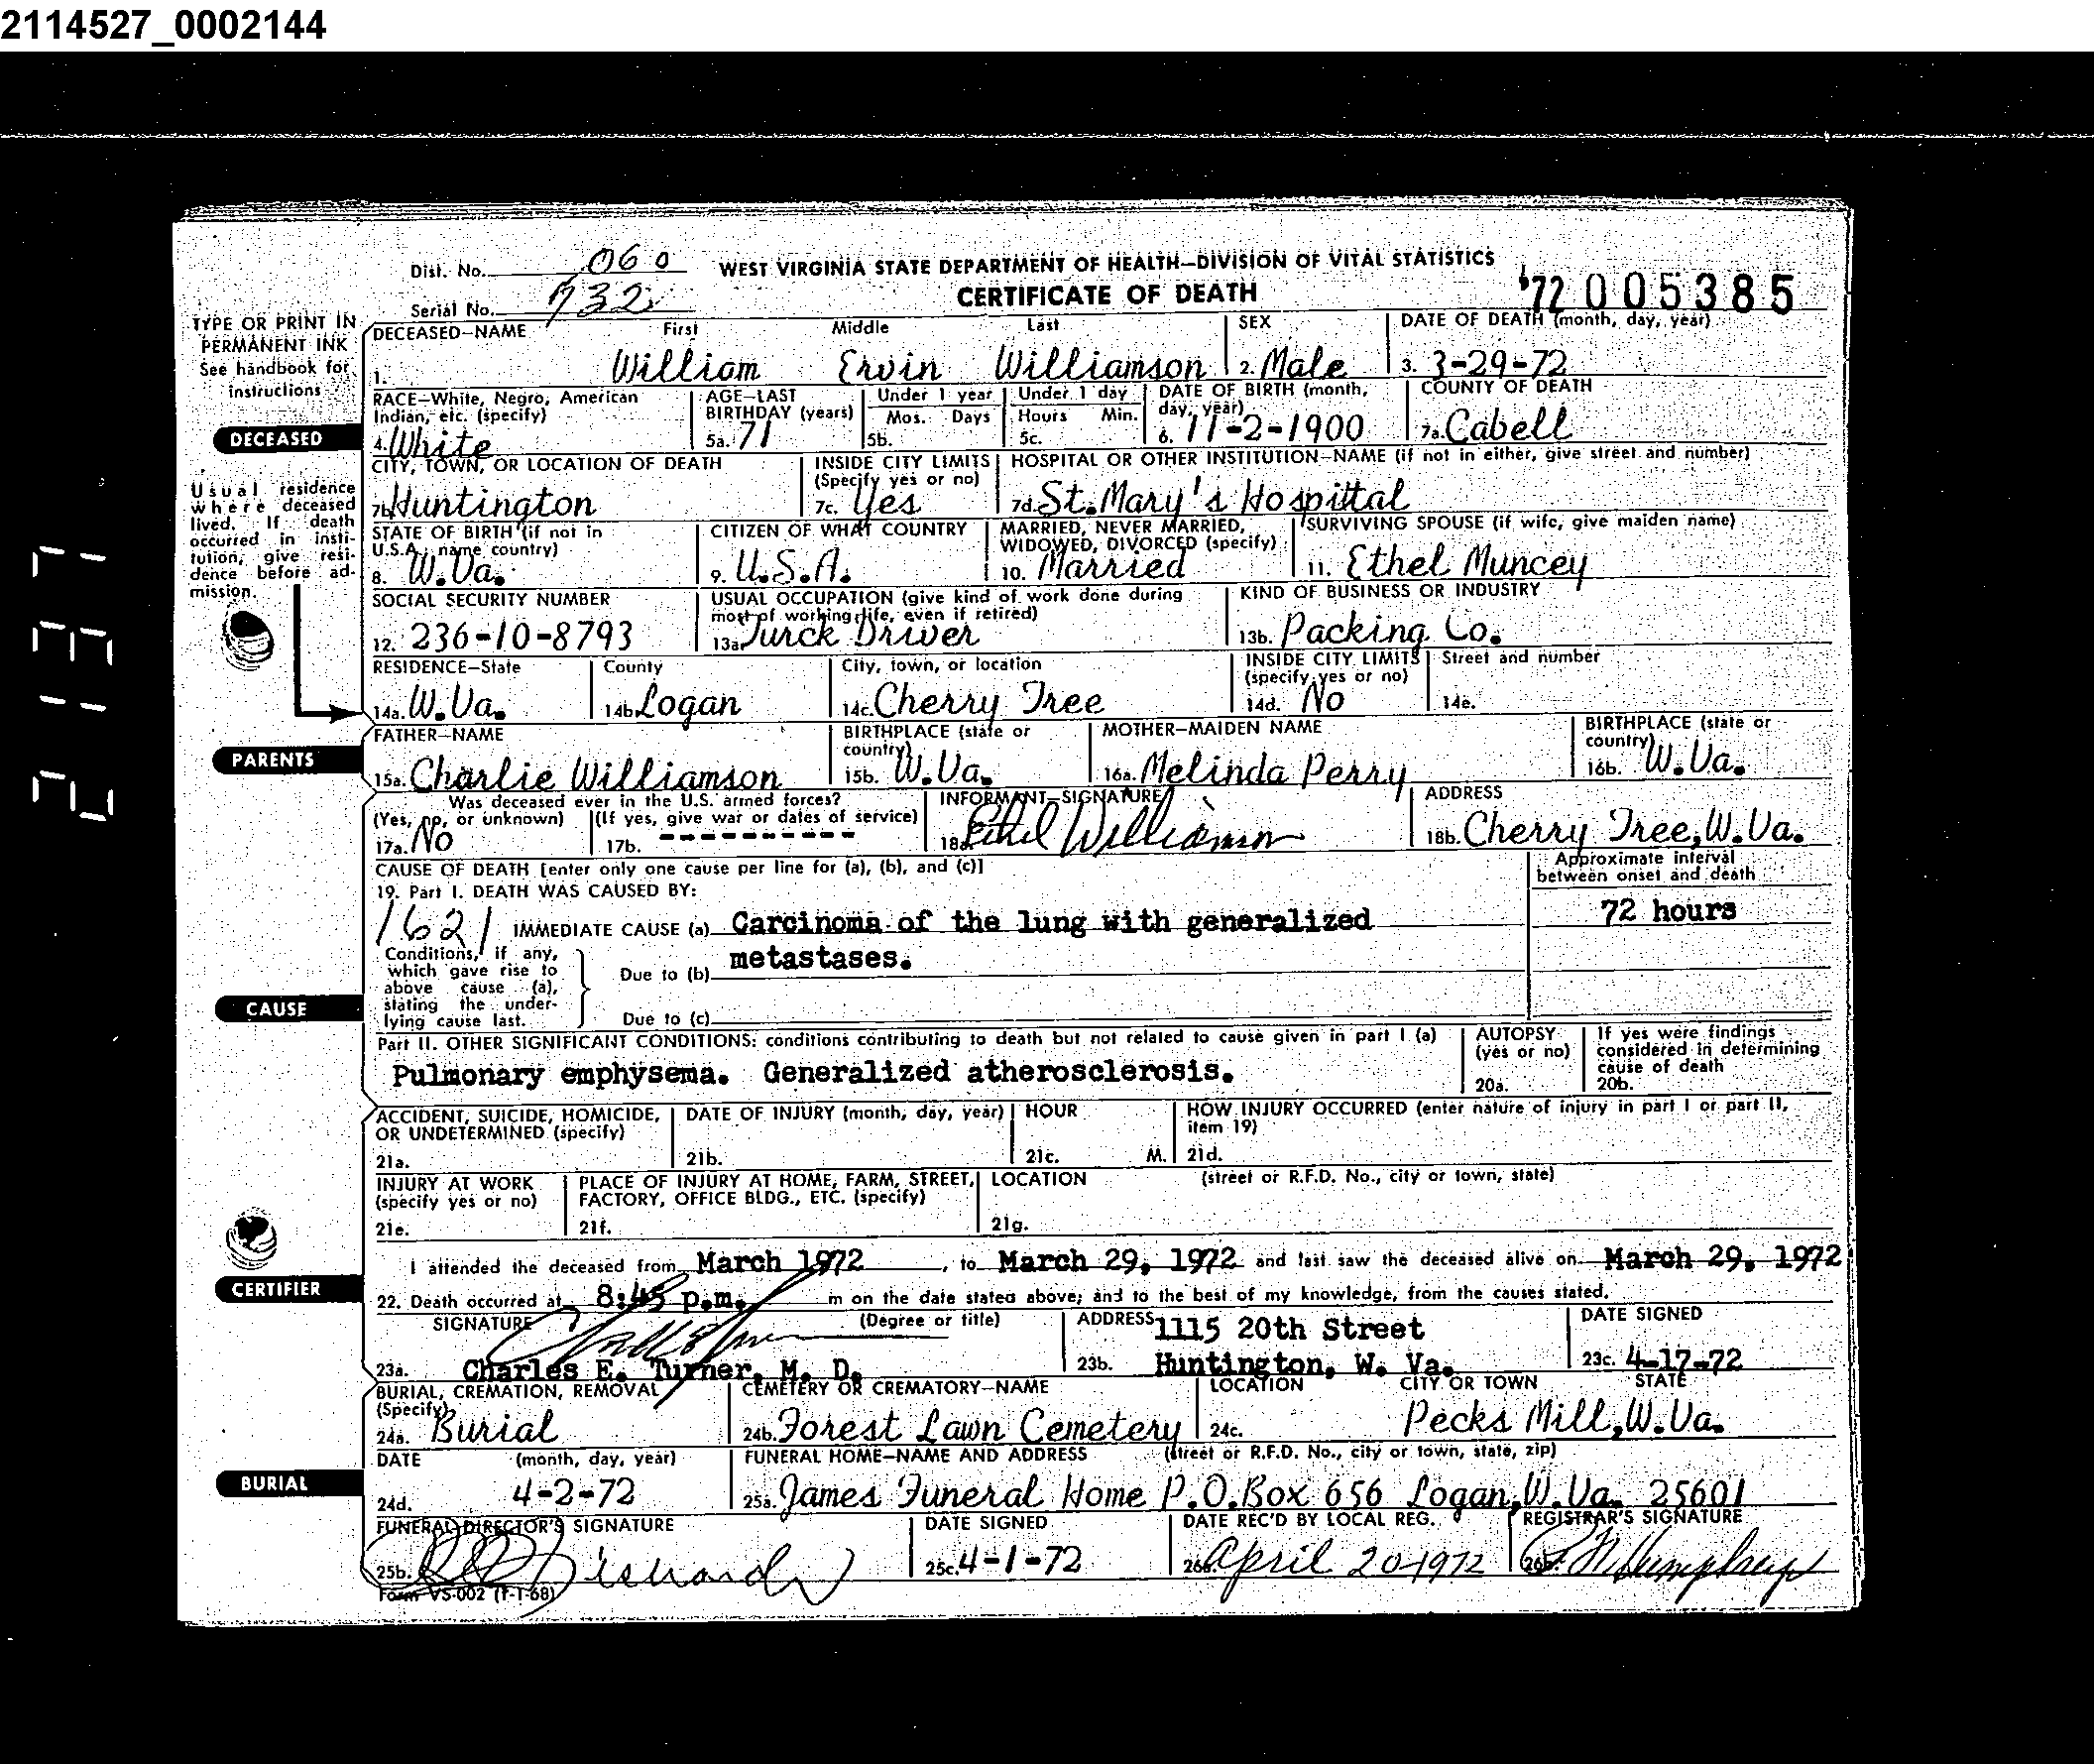 2114527_0002144
Dist. No. 060
WEST VIRGINIA STATE DEPARTMENT OF HEALTH—DIVISION OF VITAL STATISTICS
Serial No. 732
CERTIFICATE OF DEATH
'72 005385
TYPE OR PRINT IN
PERMANENT INK
See handbook for
instructions
DECEASED—NAME First Middle Last SEX DATE OF DEATH (month, day, year)
1. William Ervin Williamson 2. Male 3. 3-29-72
RACE—White, Negro, American
Indian, etc. (specify)
AGE—LAST
BIRTHDAY (years)
Under 1 year Under 1 day
Mos. Days Hours Min.
DATE OF BIRTH (month,
day, year)
COUNTY OF DEATH
DECEASED
4. White 5a. 71 5b. 5c. 6. 11-2-1900 7a. Cabell
CITY, TOWN, OR LOCATION OF DEATH
INSIDE CITY LIMITS
(Specify yes or no)
HOSPITAL OR OTHER INSTITUTION—NAME (if not in either, give street and number)
7b. Huntington 7c. Yes 7d. St. Mary's Hospittal
Usual residence
where deceased
lived. If death
occurred in insti-
tution, give resi-
dence before ad-
mission.
STATE OF BIRTH (if not in
U.S.A., name country)
CITIZEN OF WHAT COUNTRY
MARRIED, NEVER MARRIED,
WIDOWED, DIVORCED (specify)
SURVIVING SPOUSE (if wife, give maiden name)
8. W.Va. 9. U.S.A. 10. Married 11. Ethel Muncey
SOCIAL SECURITY NUMBER
USUAL OCCUPATION (give kind of work done during
most of working life, even if retired)
KIND OF BUSINESS OR INDUSTRY
12. 236-10-8793 13a. Turck Driver 13b. Packing Co.
RESIDENCE—State County City, town, or location
INSIDE CITY LIMITS
(specify yes or no)
Street and number
14a. W.Va. 14b. Logan 14c. Cherry Tree 14d. No 14e.
PARENTS
FATHER—NAME
BIRTHPLACE (state or
country)
MOTHER—MAIDEN NAME
BIRTHPLACE (state or
country)
15a. Charlie Williamson 15b. W.Va. 16a. Melinda Perry 16b. W.Va.
Was deceased ever in the U.S. armed forces?
(Yes, no, or unknown) (If yes, give war or dates of service)
INFORMANT—SIGNATURE
ADDRESS
17a. No 17b. --------- 18a. Ethel Williamson 18b. Cherry Tree, W.Va.
CAUSE OF DEATH [enter only one cause per line for (a), (b), and (c)]
Approximate interval
between onset and death
19. Part I. DEATH WAS CAUSED BY:
1621
IMMEDIATE CAUSE (a) Carcinoma of the lung with generalized 72 hours
Conditions, if any,
which gave rise to
above cause (a),
stating the under-
lying cause last.
Due to (b) metastases.
Due to (c)
CAUSE
Part II. OTHER SIGNIFICANT CONDITIONS: conditions contributing to death but not related to cause given in part I (a)
Pulmonary emphysema. Generalized atherosclerosis.
AUTOPSY
(yes or no)
20a.
If yes were findings
considered in determining
cause of death
20b.
ACCIDENT, SUICIDE, HOMICIDE,
OR UNDETERMINED (specify)
DATE OF INJURY (month, day, year)
HOUR
HOW INJURY OCCURRED (enter nature of injury in part I or part II,
item 19)
21a. 21b. 21c. M. 21d.
INJURY AT WORK
(specify yes or no)
PLACE OF INJURY AT HOME, FARM, STREET,
FACTORY, OFFICE BLDG., ETC. (specify)
LOCATION (street or R.F.D. No., city or town, state)
21e. 21f. 21g.
CERTIFIER
I attended the deceased from March 1972, to March 29, 1972 and last saw the deceased alive on March 29, 1972
22. Death occurred at 8:45 p.m. m on the date stated above; and to the best of my knowledge, from the causes stated.
SIGNATURE (Degree or title) ADDRESS 1115 20th Street DATE SIGNED
23a. Charles E. Turner, M. D. 23b. Huntington, W. Va. 23c. 4-17-72
BURIAL, CREMATION, REMOVAL
(Specify)
CEMETERY OR CREMATORY—NAME
LOCATION CITY OR TOWN STATE
24a. Burial 24b. Forest Lawn Cemetery 24c. Pecks Mill, W.Va.
BURIAL
DATE (month, day, year) FUNERAL HOME—NAME AND ADDRESS (street or R.F.D. No., city or town, state, zip)
24d. 4-2-72 25a. James Funeral Home P.O.Box 656 Logan, W.Va. 25601
FUNERAL DIRECTOR'S SIGNATURE DATE SIGNED DATE REC'D BY LOCAL REG. REGISTRAR'S SIGNATURE
25b. 25c. 4-1-72 26a. April 20-1972 26b. Humphreys
Form VS-002 (1-1-68)